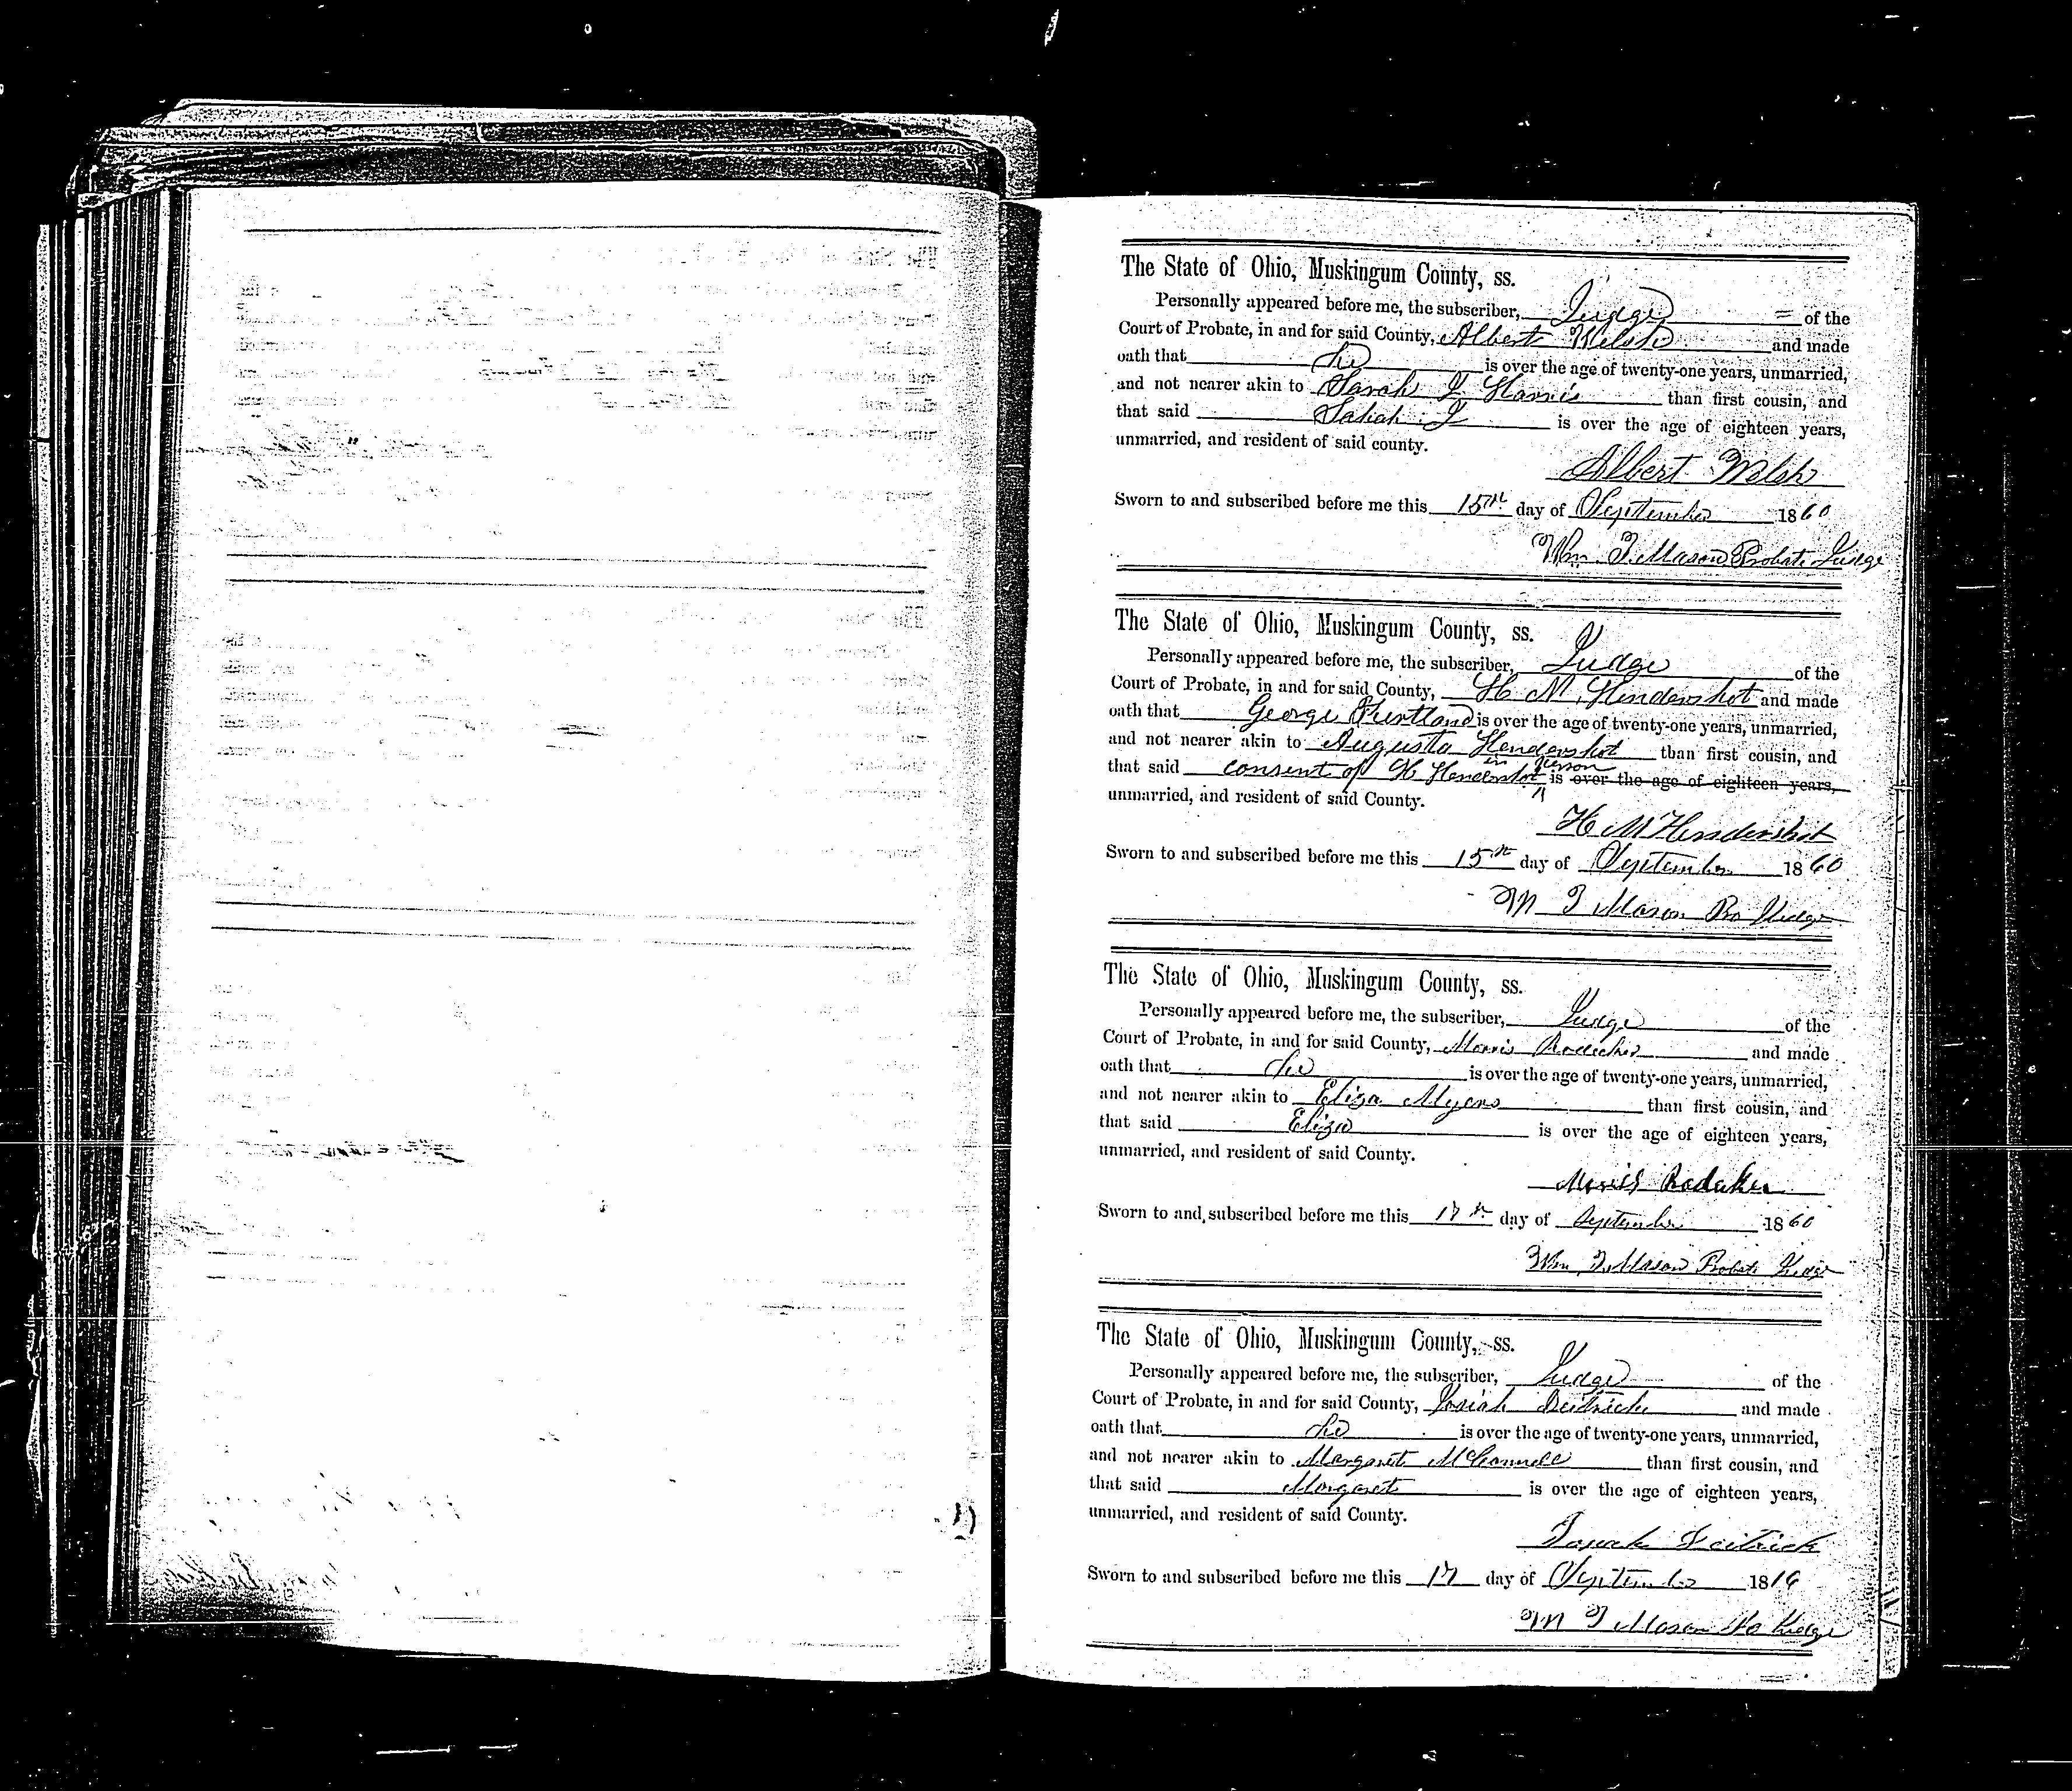 The State of Ohio, Muskingum County, ss.
Personally appeared before me, the subscriber, Judge = of the
Court of Probate, in and for said County, Albert Welsh and made
oath that he is over the age of twenty-one years, unmarried,
and not nearer akin to Sarah J Harris than first cousin, and
that said Sarah J is over the age of eighteen years,
unmarried, and resident of said county.
Albert Welsh
Sworn to and subscribed before me this 15th day of September 1860
Wm T. Mason Probate Judge
The State of Ohio, Muskingum County, ss.
Personally appeared before me, the subscriber, Judge of the
Court of Probate, in and for said County, H M. Hendershot and made
oath that George is over the age of twenty-one years, unmarried,
and not nearer akin to Augusta Hendershot than first cousin, and
that said consent of H Hendershot in person is over the age of eighteen years,
unmarried, and resident of said County.
H M Hendershot
Sworn to and subscribed before me this 15th day of September 1860
Wm T Mason Pro Judge
The State of Ohio, Muskingum County, ss.
Personally appeared before me, the subscriber, Judge of the
Court of Probate, in and for said County, Morris and made
oath that he is over the age of twenty-one years, unmarried,
and not nearer akin to Eliza Myers than first cousin, and
that said Eliza is over the age of eighteen years,
unmarried, and resident of said County.
Radaker
Sworn to and subscribed before me this 17th day of September 1860
Wm T. Mason Probate Judge
The State of Ohio, Muskingum County, ss.
Personally appeared before me, the subscriber, Judge of the
Court of Probate, in and for said County, Josiah Deitrick and made
oath that he is over the age of twenty-one years, unmarried,
and not nearer akin to Margaret McConnell than first cousin, and
that said Margaret is over the age of eighteen years,
unmarried, and resident of said County.
Deitrick
Sworn to and subscribed before me this 17 day of September 18
Wm T Mason Pro Judge